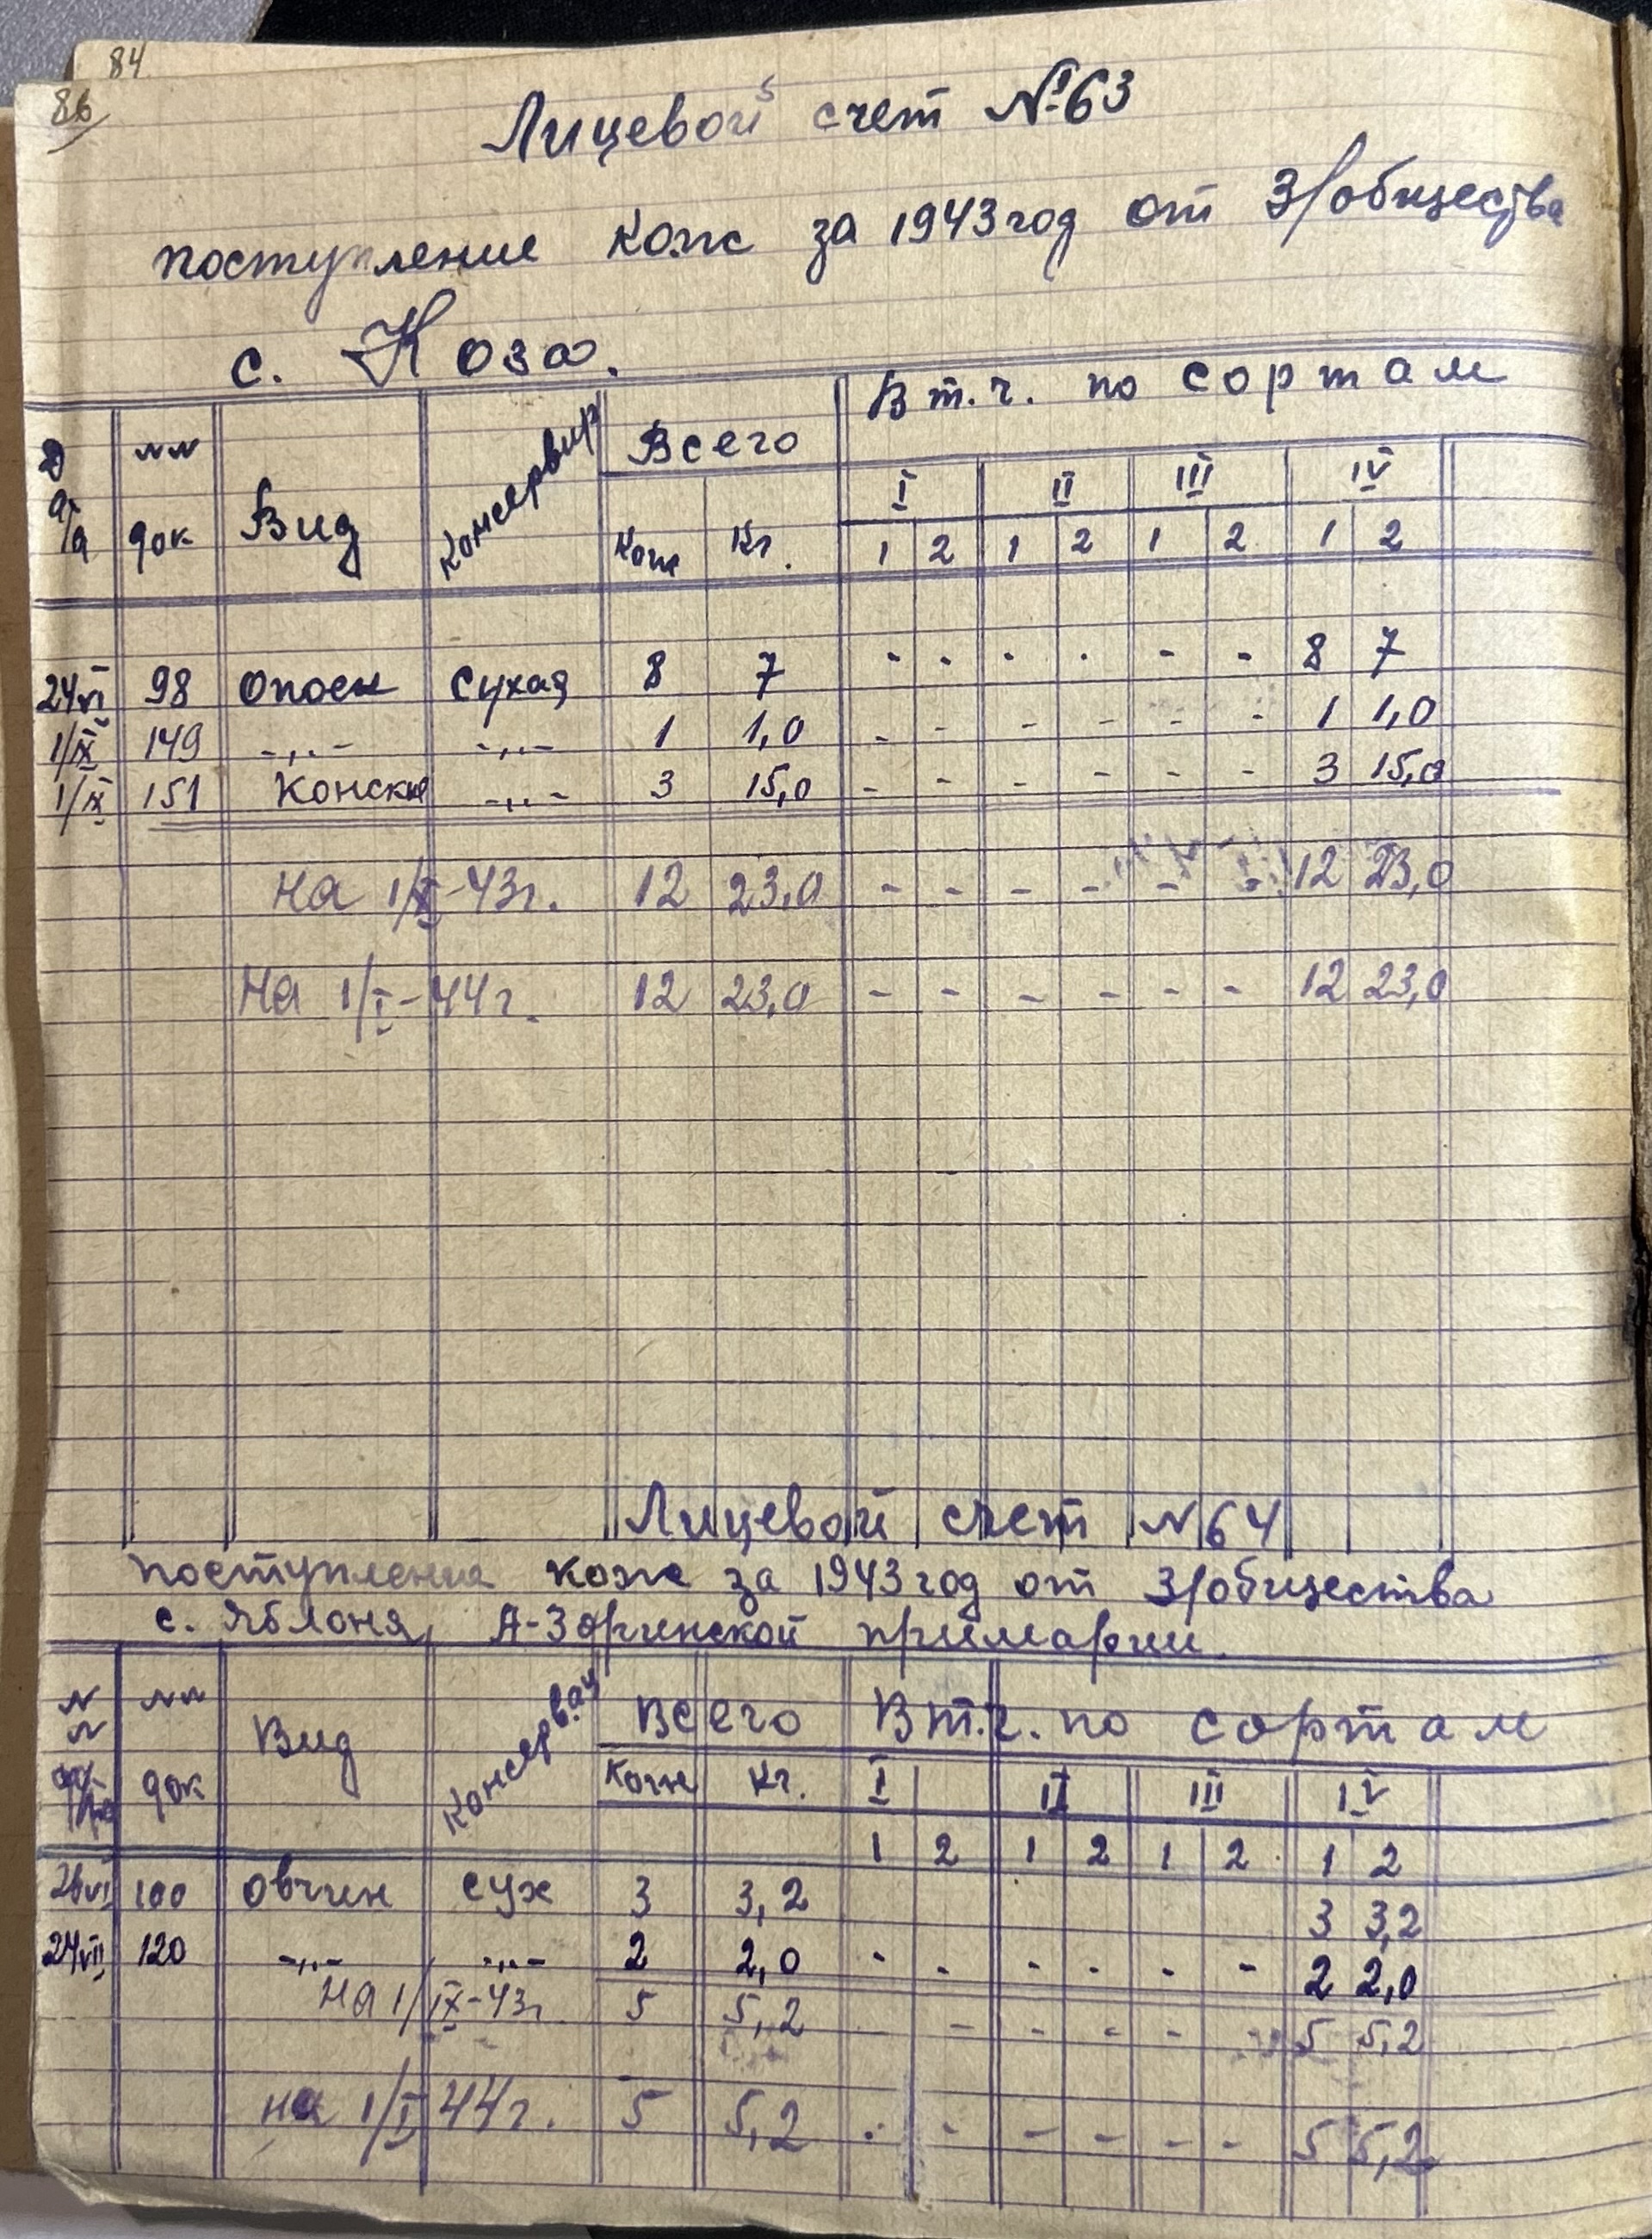 84
86
Лицевой счет №63
поступление кож за 1943 год от З/общества
с. Коза.
Дата №№ док Вид Консервир Всего В т.ч. по сортам
I II III IV
Кож Кг. 1 2 1 2 1 2 1 2
24/VI 98 Опоек Сухая 8 7 - - - - - - 8 7
1/IX 149 -„- -„- 1 1,0 - - - - - - 1 1,0
1/IX 151 Конские -„- 3 15,0 - - - - - - 3 15,0
На 1/X-43г. 12 23,0 - - - - - - 12 23,0
На 1/I-44г. 12 23,0 - - - - - - 12 23,0
Лицевой счет №64
поступление кож за 1943 год от З/общества
с. Яблоня, А-Зоринской примарии.
№№ док Вид Консервац Всего В т.ч. по сортам
Кож Кг. I II III IV
1 2 1 2 1 2 1 2
26/VI 100 овчин сух 3 3,2 3 3,2
24/VII 120 -„- -„- 2 2,0 - - - - - - 2 2,0
На 1/IX-43г 5 5,2 - - - - - 5 5,2
на 1/I 44г. 5 5,2 - - - - - - 5 5,2